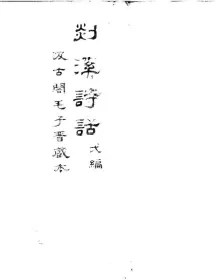 剡溪詩話
弍編
汲古閣毛子晉藏本